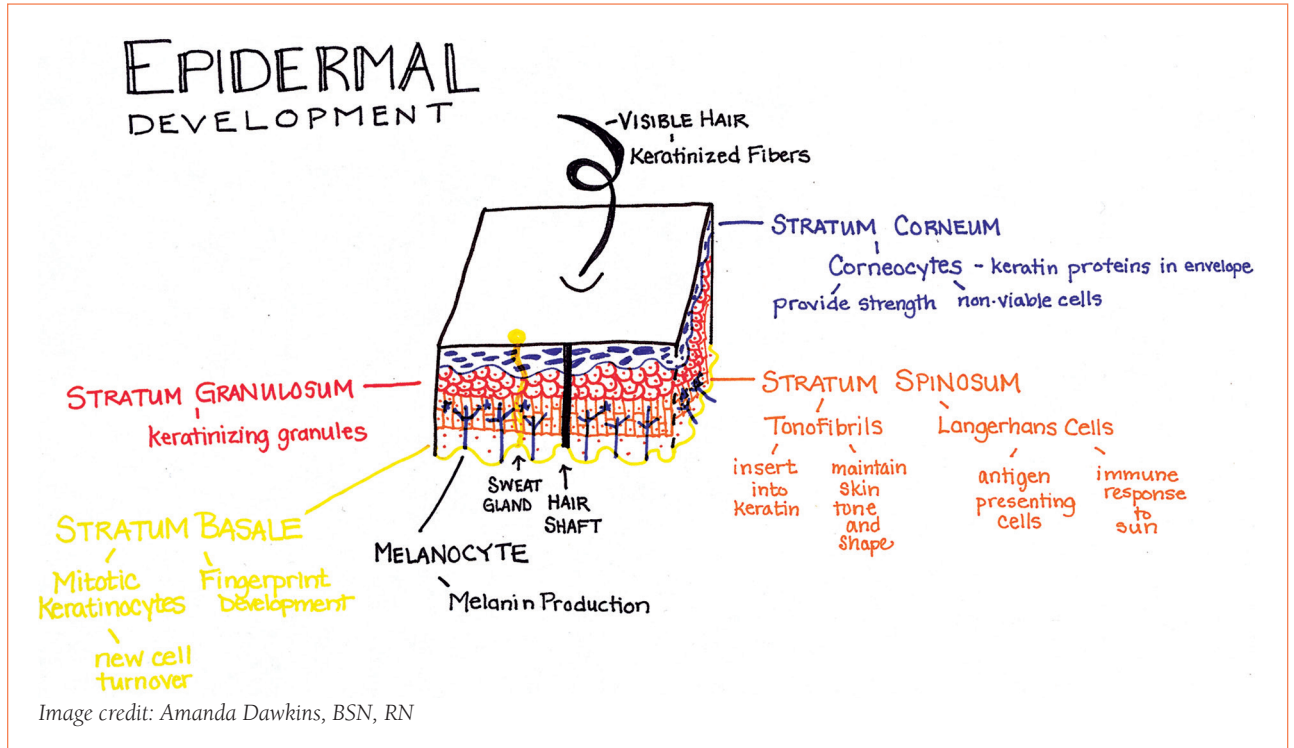 EPIDERMAL
DEVELOPMENT
VISIBLE HAIR
Keratinized Fibers
STRATUM CORNEUM
Corneocytes - keratin proteins in envelope
provide strength
non-viable cells
STRATUM GRANULOSUM
keratinizing granules
STRATUM SPINOSUM
Tonofibrils
insert
into
keratin
maintain
skin
tone
and
shape
Langerhans Cells
antigen
presenting
cells
immune
response
to
sun
SWEAT
GLAND
HAIR
SHAFT
STRATUM BASALE
Mitotic
Keratinocytes
new cell
turnover
Fingerprint
Development
MELANOCYTE
Melanin Production
Image credit: Amanda Dawkins, BSN, RN